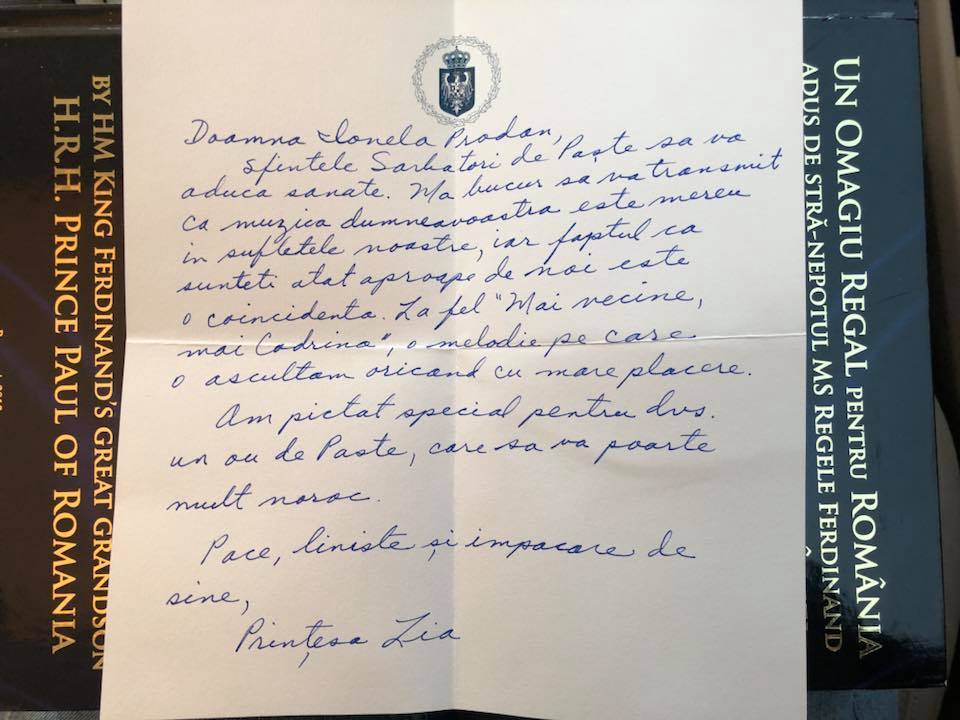 Doamna Ionela Prodan,
Sfintele Sarbatori de Paște sa va
aduca sanate. Ma bucur sa va transmit
ca muzica dumneavoastra este mereu
in sufletele noastre, iar faptul ca
sunteti atat aproape de noi este
o coincidenta. La fel "Mai vecine,
mai Codrina", o melodie pe care
o ascultam oricand cu mare placere.
Am pictat special pentru dvs.
un ou de Paste, care sa va poarte
mult noroc.
Pace, liniste și impacare de
sine,
Prințesa Lia
BY HM KING FERDINAND'S GREAT GRANDSON
H.R.H. PRINCE PAUL OF ROMANIA
UN OMAGIU REGAL PENTRU ROMÂNIA
ADUS DE STRĂ-NEPOTUL MS REGELE FERDINAND